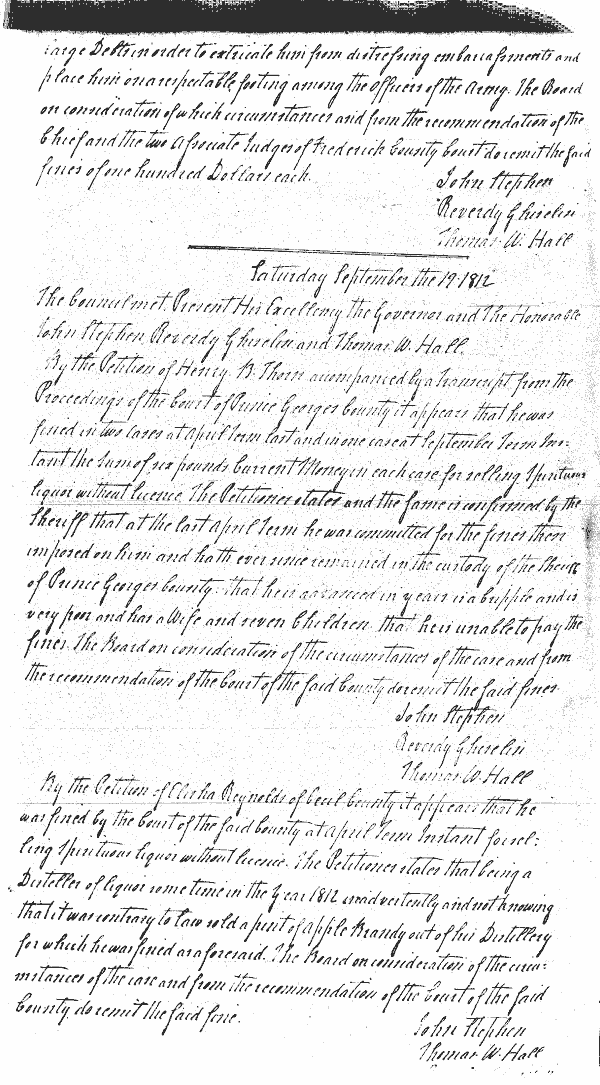 large Debts in order to extricate him from distressing embarrassments and
place him on a respectable footing among the Officers of the Army. The Board
on consideration of which circumstances and from the recommendation of the
Chief and the two Associate Judges of Frederick County Court do remit the said
fines of one hundred Dollars each.
John Stephen
Reverdy Ghiselin
Thomas W. Hall
Saturday September the 19 1812
The Council met. Present His Excellency the Governor and The Honorable
John Stephen, Reverdy Ghiselin and Thomas W. Hall.
By the Petition of Henry B. Thorn accompanied by a Transcript from the
Proceedings of the Court of Prince Georges County it appears that he was
fined in two cases at April Term last and in one case at September Term Ins-
tant the sum of six pounds Current Money in each case for selling Spirituous
liquor without licence. The Petitioner states and the same is confirmed by the
Sheriff that at the last April Term he was committed for the fines then
imposed on him and hath ever since remained in the custody of the Sheriff
of Prince Georges County. that he is advanced in years is a Cripple and is
very poor and has a Wife and seven Children that he is unable to pay the
fines. The Board on consideration of the circumstances of the case and from
the recommendation of the Court of the said County do remit the said fines
John Stephen
Reverdy Ghiselin
Thomas W. Hall
By the Petition of Elisha Reynolds of Cecil County it appears that he
was fined by the Court of the said County at April Term Instant for sel-
ling Spirituous liquor without licence. The Petitioner states that being a
Distiller of liquor some time in the Year 1812 inadvertently and not knowing
that it was contrary to law sold a pint of Apple Brandy out of his Distillery
for which he was fined as aforesaid. The Board on consideration of the circu-
mstances of the case and from the recommendation of the Court of the said
County do remit the said fine.
John Stephen
Thomas W. Hall